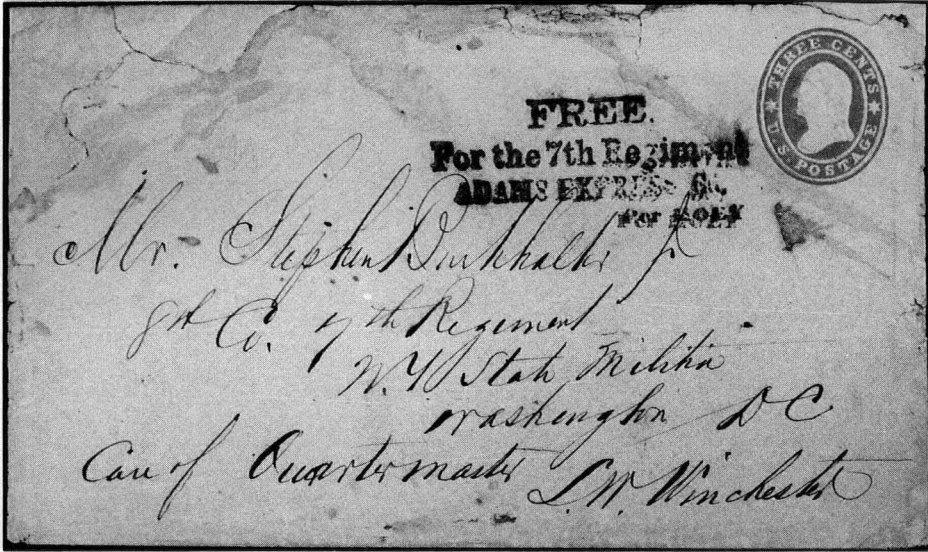 THREE CENTS
U.S. POSTAGE
FREE.
For the 7th Regiment
ADAMS EXPRESS Co.
Per HOEY
Mr. Stephen Burkhalter Jr
8th Co. 7th Regiment
N.Y. State Militia
Washington DC
Care of Quartermaster L.W. Winchester